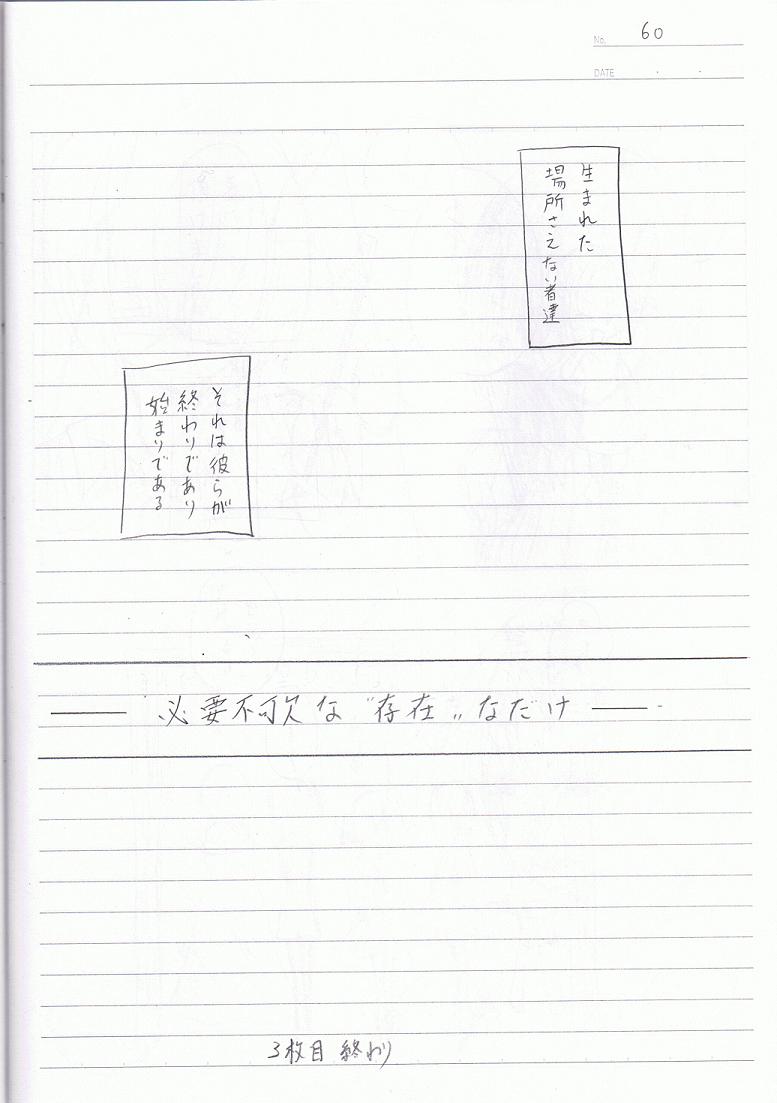 No. 60
DATE
生まれた
場所さえない者達
それは彼らが
終わりであり
始まりである
―― 必要不可欠な〝存在〟なだけ ――
3枚目 終わり